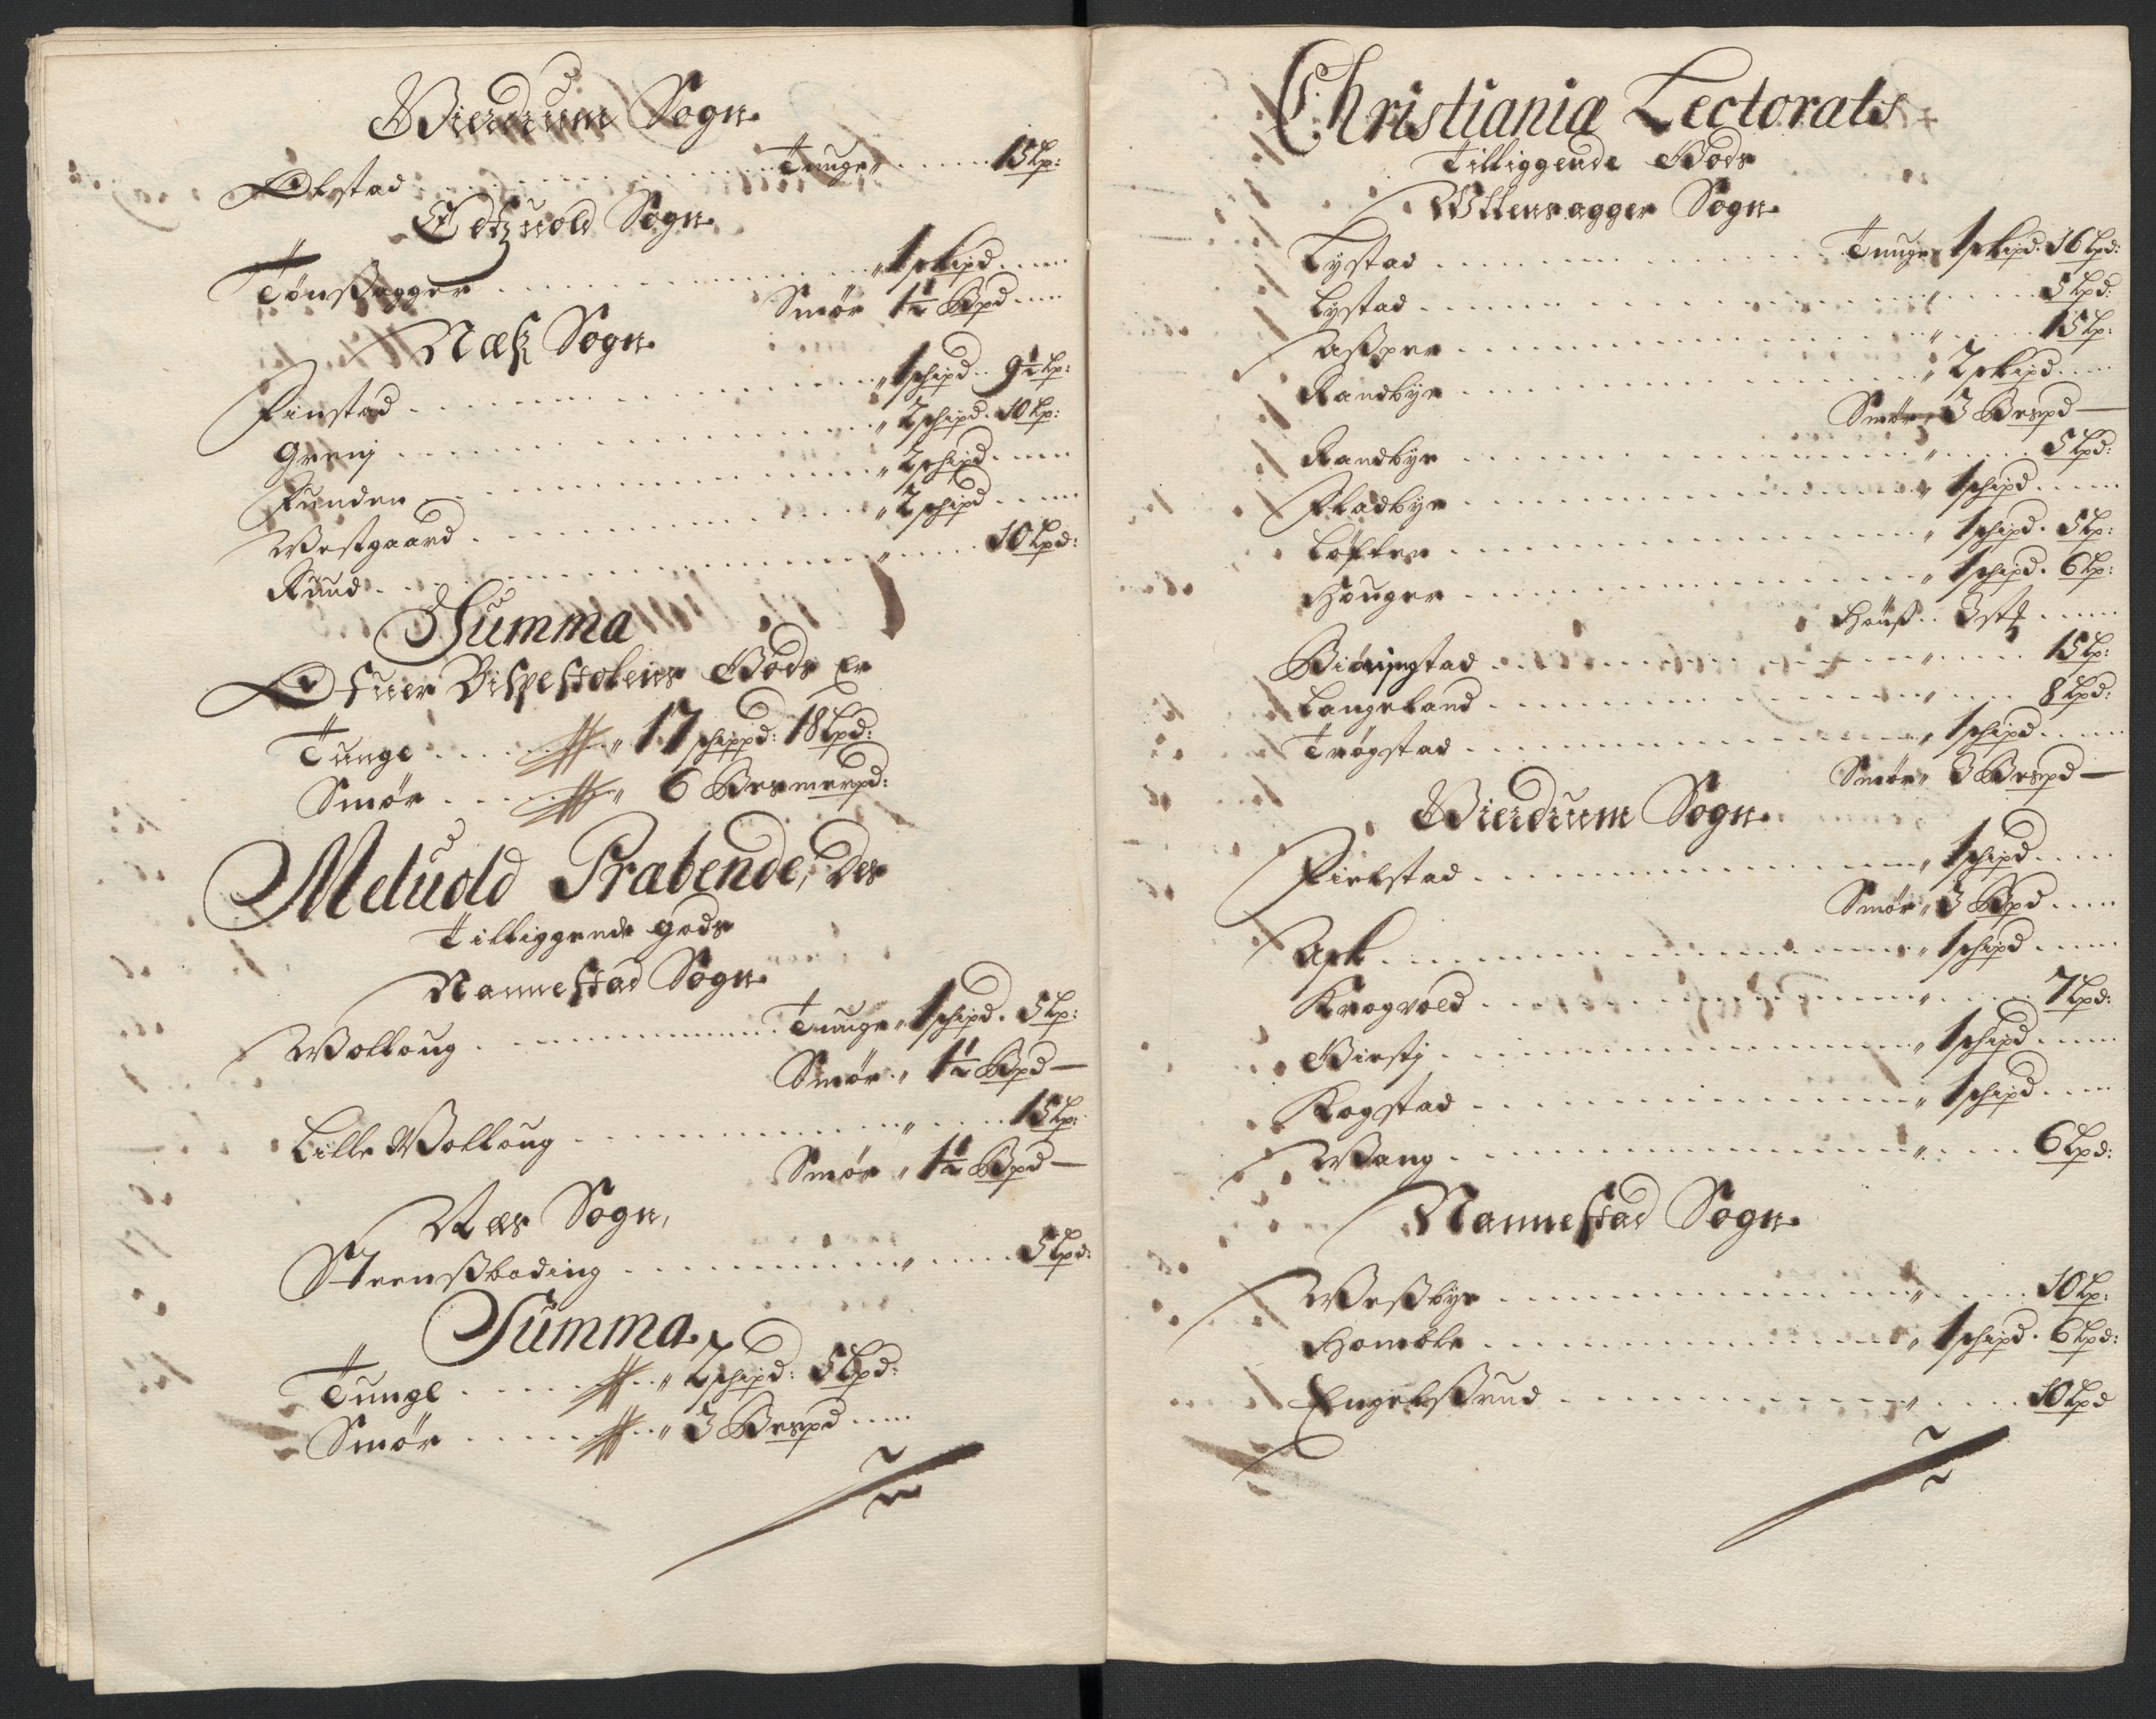 Gierdrum Sogn
Olstad . . . Tunge „ . . . 15 Lp:
Edtzuold Sogn
Tønsßagger . . . „ 1 skipd . . .
Smør 1½ Bpd . . .
Næss Sogn
Finstad . . . „ 1 schipd . 9½ Lp:
Grenj . . . „ 2 schipd . 10 Lp:
Funden . . . „ 2 schipd . . .
Westgaard . . . „ 2 schipd . . .
Ruud . . . „ . . . 10 Lpd:
Summa
Ofuer Bispestolens Gods Er
Tunge . . . „ 17 schippd: 18 Lpd:
Smør . . . „ 6 Besmerpd:
Meluold Præbende, des
tilliggende gods
Nannestad Sogn
Wolloug . . . Tunge „ 1 schipd . 5 Lp:
Smør „ 1½ Bpd —
Lille Wolloug . . . „ . . . 15 Lp:
Smør „ 1½ Bpd —
Næs Sogn,
Steensßboding . . . „ . . . 5 Lpd:
Summa
Tunge . . . „ 2 schipd: 5 Lpd:
Smør . . . „ 3 Bespd . . .
Christiania Lectorats
Tilliggende Gods
Ullensagger Sogn
Lystad . . . Tunge „ 1 skipd . 16 Lpd:
Lystad . . . „ . . . 5 Lpd:
Aßper . . . „ . . . 15 Lp:
Randbye . . . „ 2 skipd . . .
Smør „ 3 Bespd —
Randbye . . . „ . . . 5 Lpd:
Fladbye . . . „ 1 schipd . . .
Løfter . . . „ 1 schipd . 5 Lp:
Houger . . . „ 1 schipd . 6 Lp:
Houß . . 3 st . . .
Biøringstad . . . „ . . . 15 Lp:
Langeland . . . „ . . . 8 Lpd:
Trøgstad . . . „ 1 schipd . . .
Smør „ 3 Bespd —
Gierdrum Sogn
Fielstad . . . „ 1 schipd . . .
Smør „ 3 Bpd . . .
Ask . . . „ 1 schipd . . .
Krogvold . . . „ . . . 7 Lpd:
Giestj . . . „ 1 schipd . . .
Kogstad . . . „ 1 schipd . . .
Wang . . . „ . . . 6 Lpd:
Nannestad Sogn
Weßbye . . . „ . . . 10 Lp:
Homble . . . „ 1 schipd . 6 Lpd:
Engelsßrud . . . „ . . . 10 Lpd